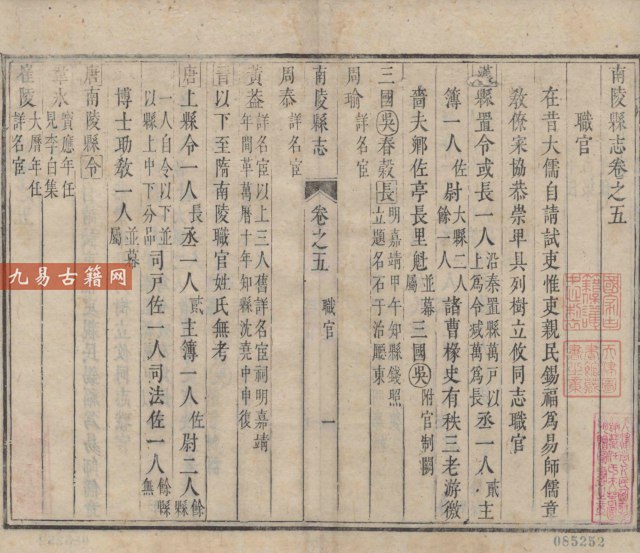 南陵縣志卷之五
職官
在昔大儒自請試吏惟吏親民錫福爲易師儒章
教僚寀協恭崇卑具列樹立攸同志職官
漢縣置令或長一人沿秦置縣萬戶以上爲令減萬爲長丞一人貳主
簿一人佐尉大縣二人餘一人諸曹椽史有秩三老游徼
嗇夫鄉佐亭長里魁並幕屬三國吳附官制闕
三國吳春穀長明嘉靖甲午知縣錢照立題名石于治廳東
周瑜詳名宦
南陵縣志
卷之五
職官
一
周泰詳名宦
黃葢詳名宦以上三人舊詳名宦祠明嘉靖年間革萬曆十年知縣沈堯中申復
晉以下至隋南陵職官姓氏無考
唐上縣令一人長丞一人貳主簿一人佐尉二人餘縣
一人自令以下並以縣上中下分品司戸佐一人司法佐一人餘縣無
博士功敎一人並幕屬
唐南陵縣令
韋氷寳應年任見李白集
崔陵大曆年任詳名宦
九易古籍网
085252